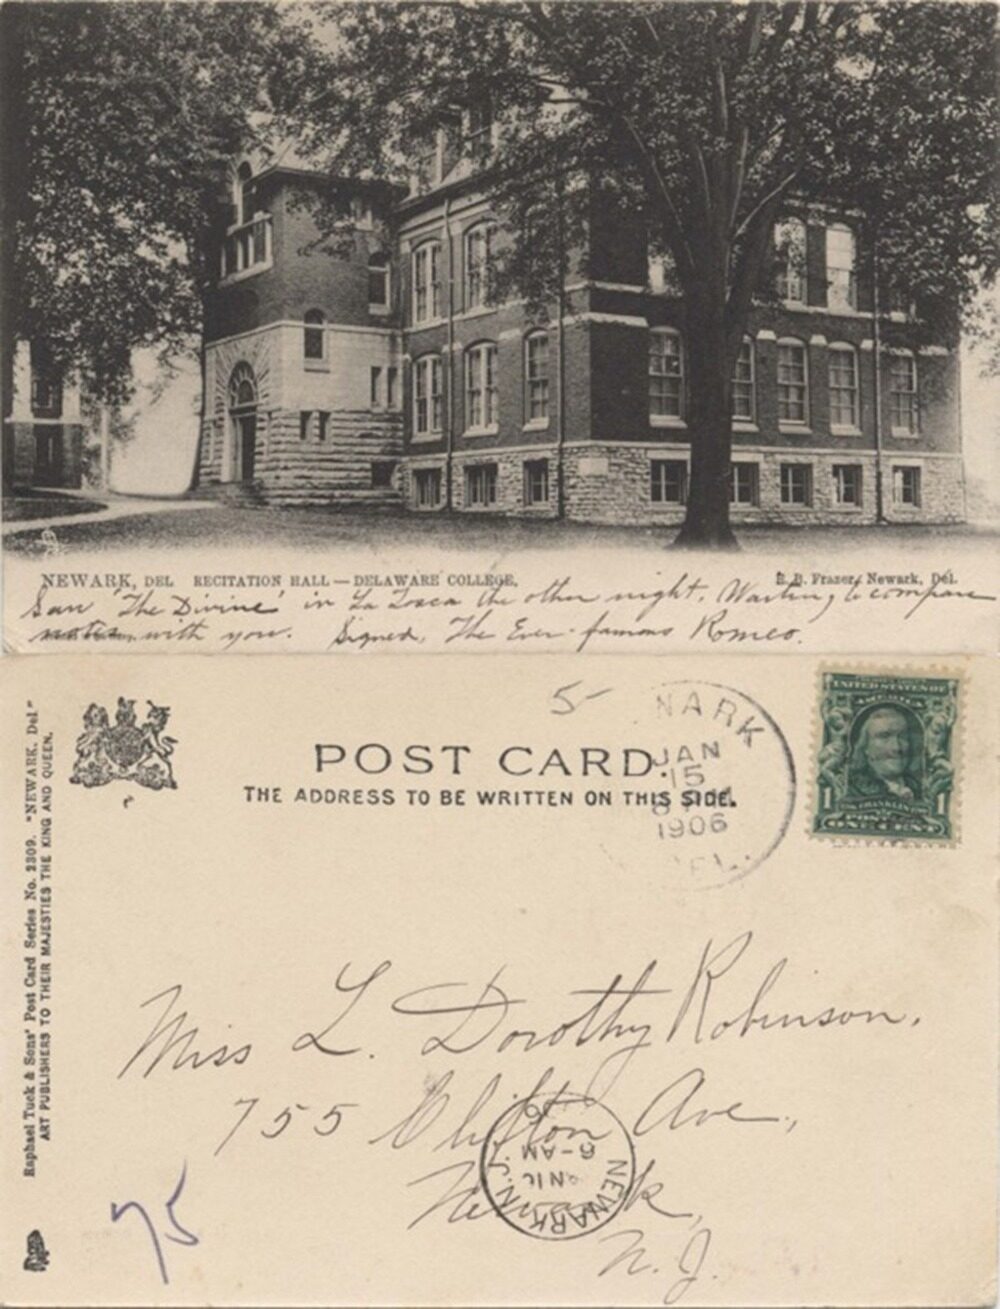 NEWARK, DEL RECITATION HALL — DELAWARE COLLEGE.
E. B. Frazer, Newark, Del.
Saw 'The Divine' in La Tosca the other night. Waiting to compare
notes with you. Signed, The Ever-famous Romeo.
5
POST CARD.
THE ADDRESS TO BE WRITTEN ON THIS SIDE.
NARK
JAN
15
1906
DEL.
UNITED STATES OF
AMERICA
1 1
ONE CENT
Raphael Tuck & Sons' Post Card Series No. 2309. "NEWARK, Del"
ART PUBLISHERS TO THEIR MAJESTIES THE KING AND QUEEN.
Miss L. Dorothy Robinson,
755 Clifton Ave.,
Newark,
N. J.
NEWARK, N.J.
6-AM
75